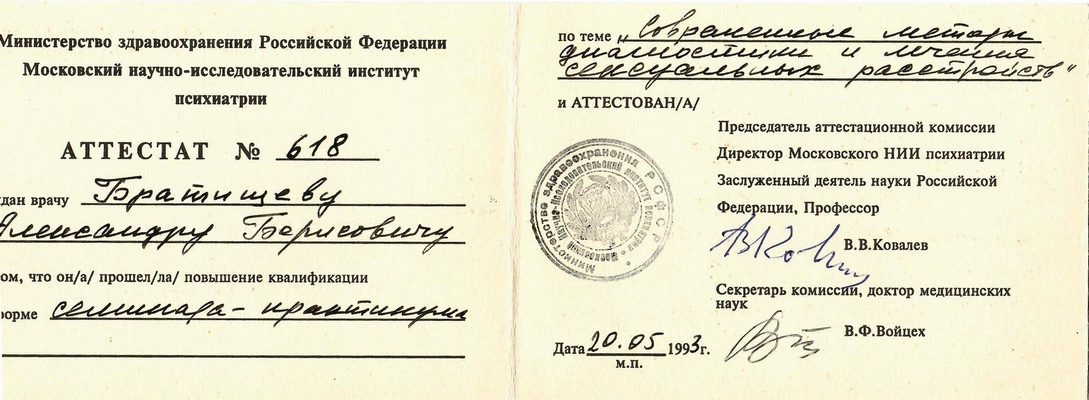 Министерство здравоохранения Российской Федерации
Московский научно-исследовательский институт
психиатрии
АТТЕСТАТ № 618
дан врачу Братищеву
Александру Борисовичу
ом, что он/а/ прошел/ла/ повышение квалификации
орме семинара-практикума
по теме „Современные методы
диагностики и лечения
сексуальных расстройств"
и АТТЕСТОВАН/А/
Председатель аттестационной комиссии
Директор Московского НИИ психиатрии
Заслуженный деятель науки Российской
Федерации, Профессор
В.В.Ковалев
Секретарь комиссии, доктор медицинских
наук
В.Ф.Войцех
Дата 20.05 1993г.
м.п.
Министерство здравоохранения РСФСР
Московский научно-исследовательский институт психиатрии